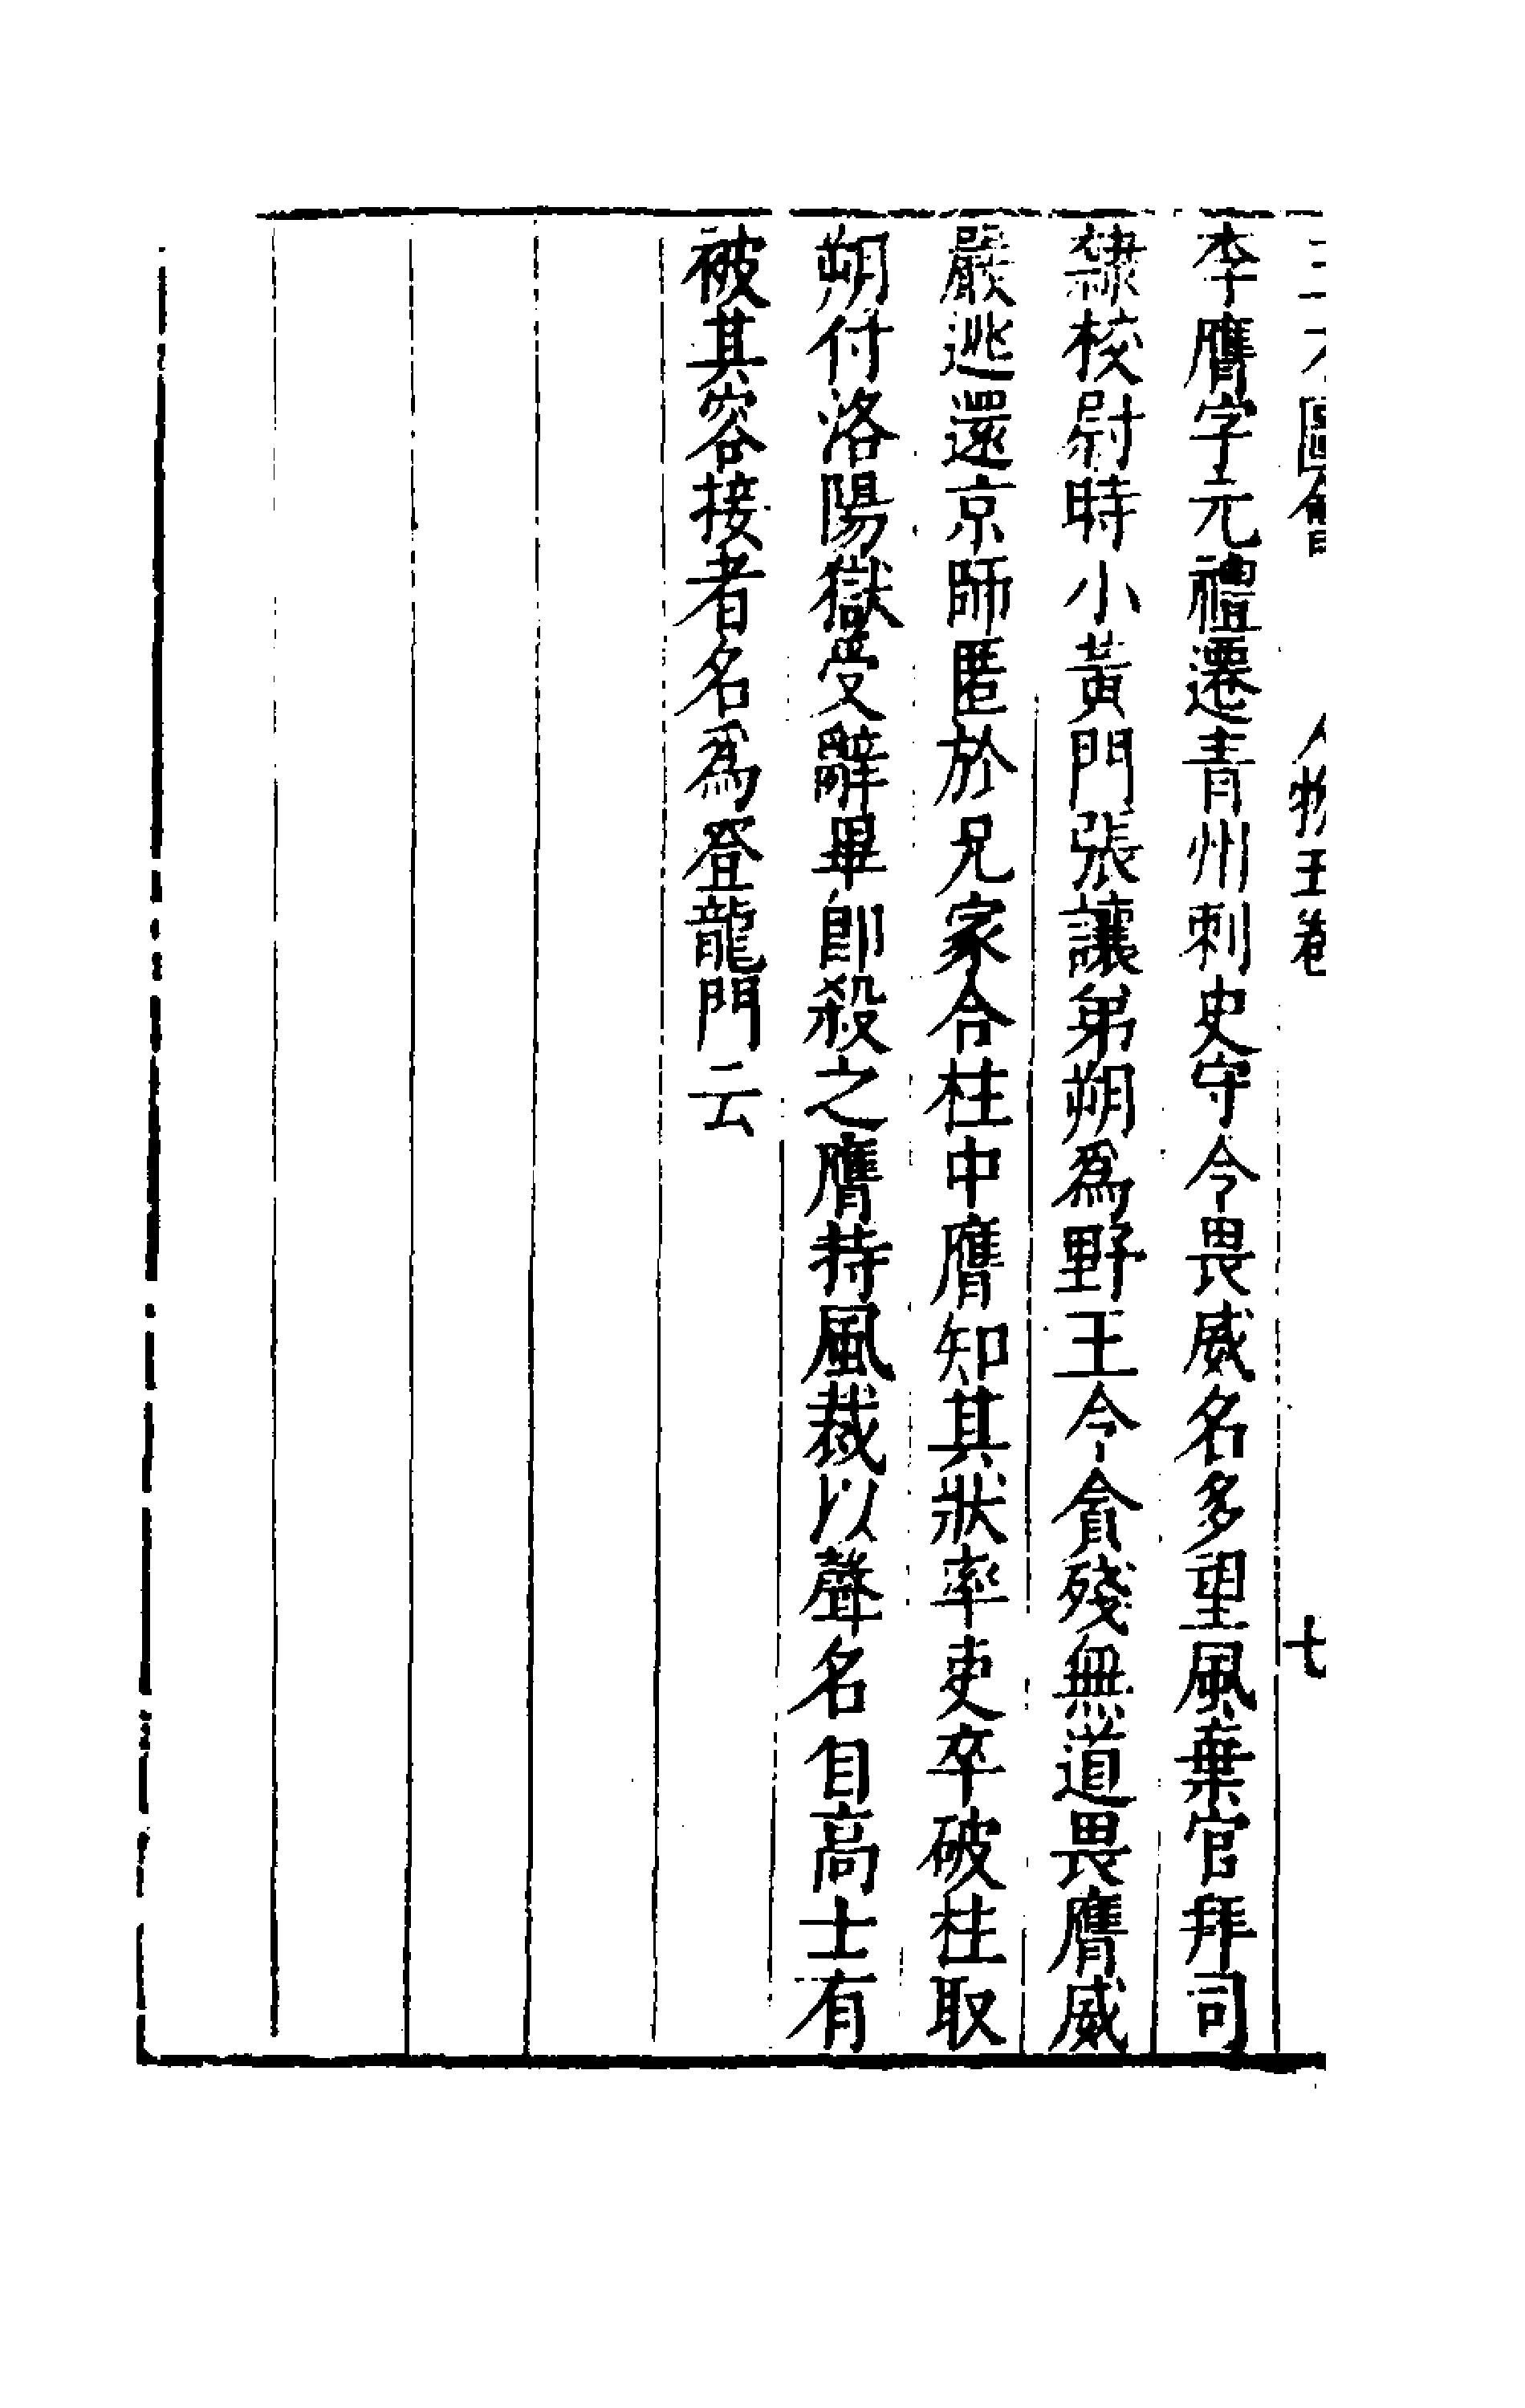 三才圖會 人物五卷 七
李膺字元禮遷青州刺史守令畏威名多望風棄官拜司
隸校尉時小黃門張讓弟朔為野王令貪殘無道畏膺威
嚴逃還京師匿於兄家合柱中膺知其狀率吏卒破柱取
朔付洛陽獄受辭畢即殺之膺持風裁以聲名自高士有
被其容接者名為登龍門云